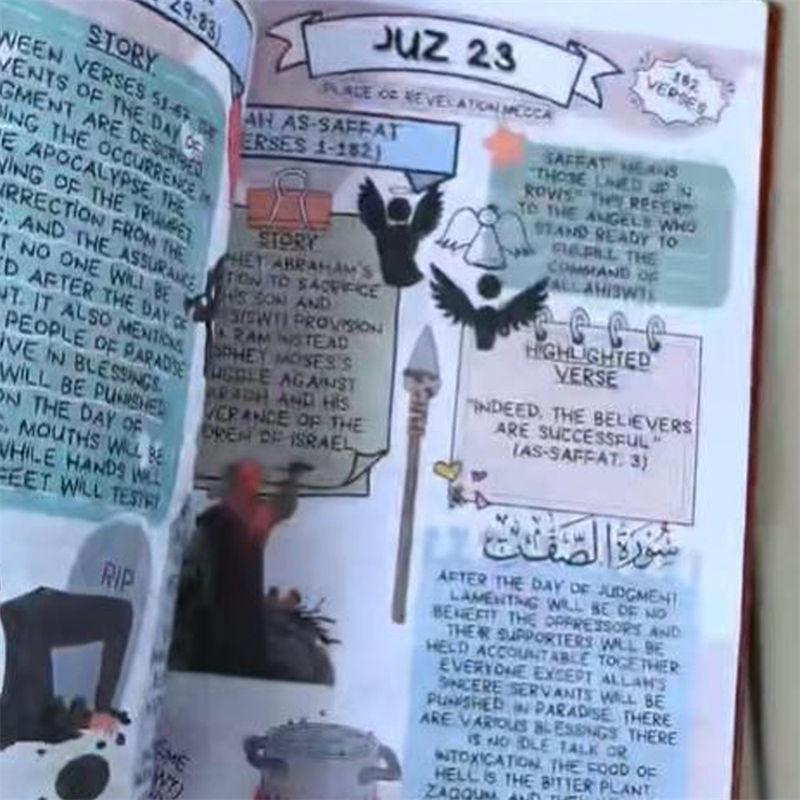 29-83)
STORY
WEEN VERSES 51-67, THE
VENTS OF THE DAY OF
GMENT ARE DESCRIBED,
ING THE OCCURRENCE
E APOCALYPSE, THE
WING OF THE TRUMPET,
URRECTION FROM THE
, AND THE ASSURANCE
T NO ONE WILL BE
ED AFTER THE DAY OF
NT. IT ALSO MENTIONS
PEOPLE OF PARADISE
IVE IN BLESSINGS,
WILL BE PUNISHED
ON THE DAY OF
, MOUTHS WILL BE
WHILE HANDS WILL
FEET WILL TESTIFY
RIP
JUZ 23
PLACE OF REVELATION: MECCA
182
VERSES
AH AS-SAFFAT
ERSES 1-182)
STORY
HET ABRAHAM'S
TION TO SACRIFICE
HIS SON AND
S(SWT) PROVISION
A RAM INSTEAD
PHET MOSES'S
UGGLE AGAINST
ARAOH AND HIS
VERANCE OF THE
DREN OF ISRAEL
"SAFFAT" MEANS
"THOSE LINED UP IN
ROWS" THIS REFERS
TO THE ANGELS WHO
STAND READY TO
FULFILL THE
COMMAND OF
ALLAH(SWT)
HIGHLIGHTED
VERSE
"INDEED, THE BELIEVERS
ARE SUCCESSFUL"
(AS-SAFFAT, 3)
سُورَةُ الصَّفَّت
AFTER THE DAY OF JUDGMENT
LAMENTING WILL BE OF NO
BENEFIT THE OPPRESSORS AND
THEIR SUPPORTERS WILL BE
HELD ACCOUNTABLE TOGETHER
EVERYONE EXCEPT ALLAH'S
SINCERE SERVANTS WILL BE
PUNISHED. IN PARADISE, THERE
ARE VARIOUS BLESSINGS. THERE
IS NO IDLE TALK OR
INTOXICATION. THE FOOD OF
HELL IS THE BITTER PLANT
ZAQQUM, AND